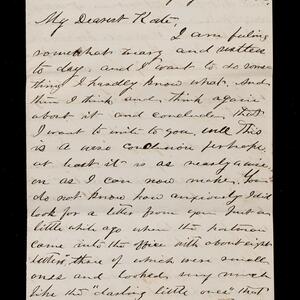 My Dearest Kate,
I am feeling
somewhat weary and restless
to day, and I want to do some
thing I hardly know what. And
then I think and think again
about it and conclude that
I want to write to you, well this
is a wise conclusion perhaps
at least it is as nearly a wise
on as I can now make. You
do not know how anxiously I did
look for a letter from you just a
little while ago when the postman
came into the office with about eight
letters, three of which were small
ones and looked very much
like the "darling little ones" that